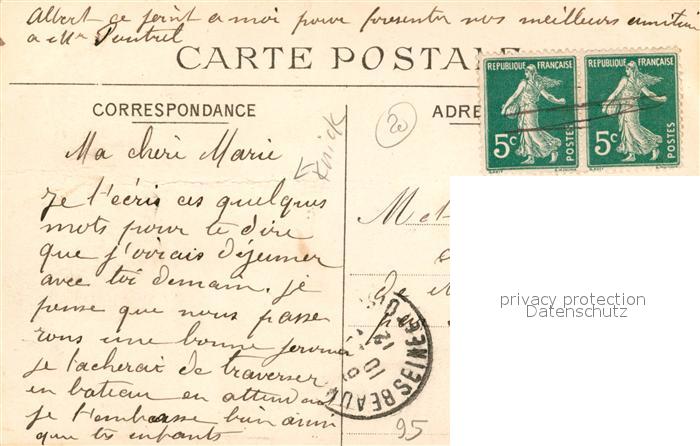 Albert ce joint a moi pour presenter nos meilleurs
a Mr
CARTE POSTALE
REPUBLIQUE FRANÇAISE
REPUBLIQUE FRANÇAISE
5c POSTES
5c POSTES
CORRESPONDANCE
ADRE
20
Ma cheri Marie
Je t'ecris ces quelques
mots pour te dire
que j'oirais déjeuner
avec toi demain. je
pense que nous passe
rons une bonne journee
je tacherai de traverser
en bateau en attendant
je t'embrasse bien ainsi
que tes enfants
privacy protection
Datenschutz
BEAU SEINE
12
10
95